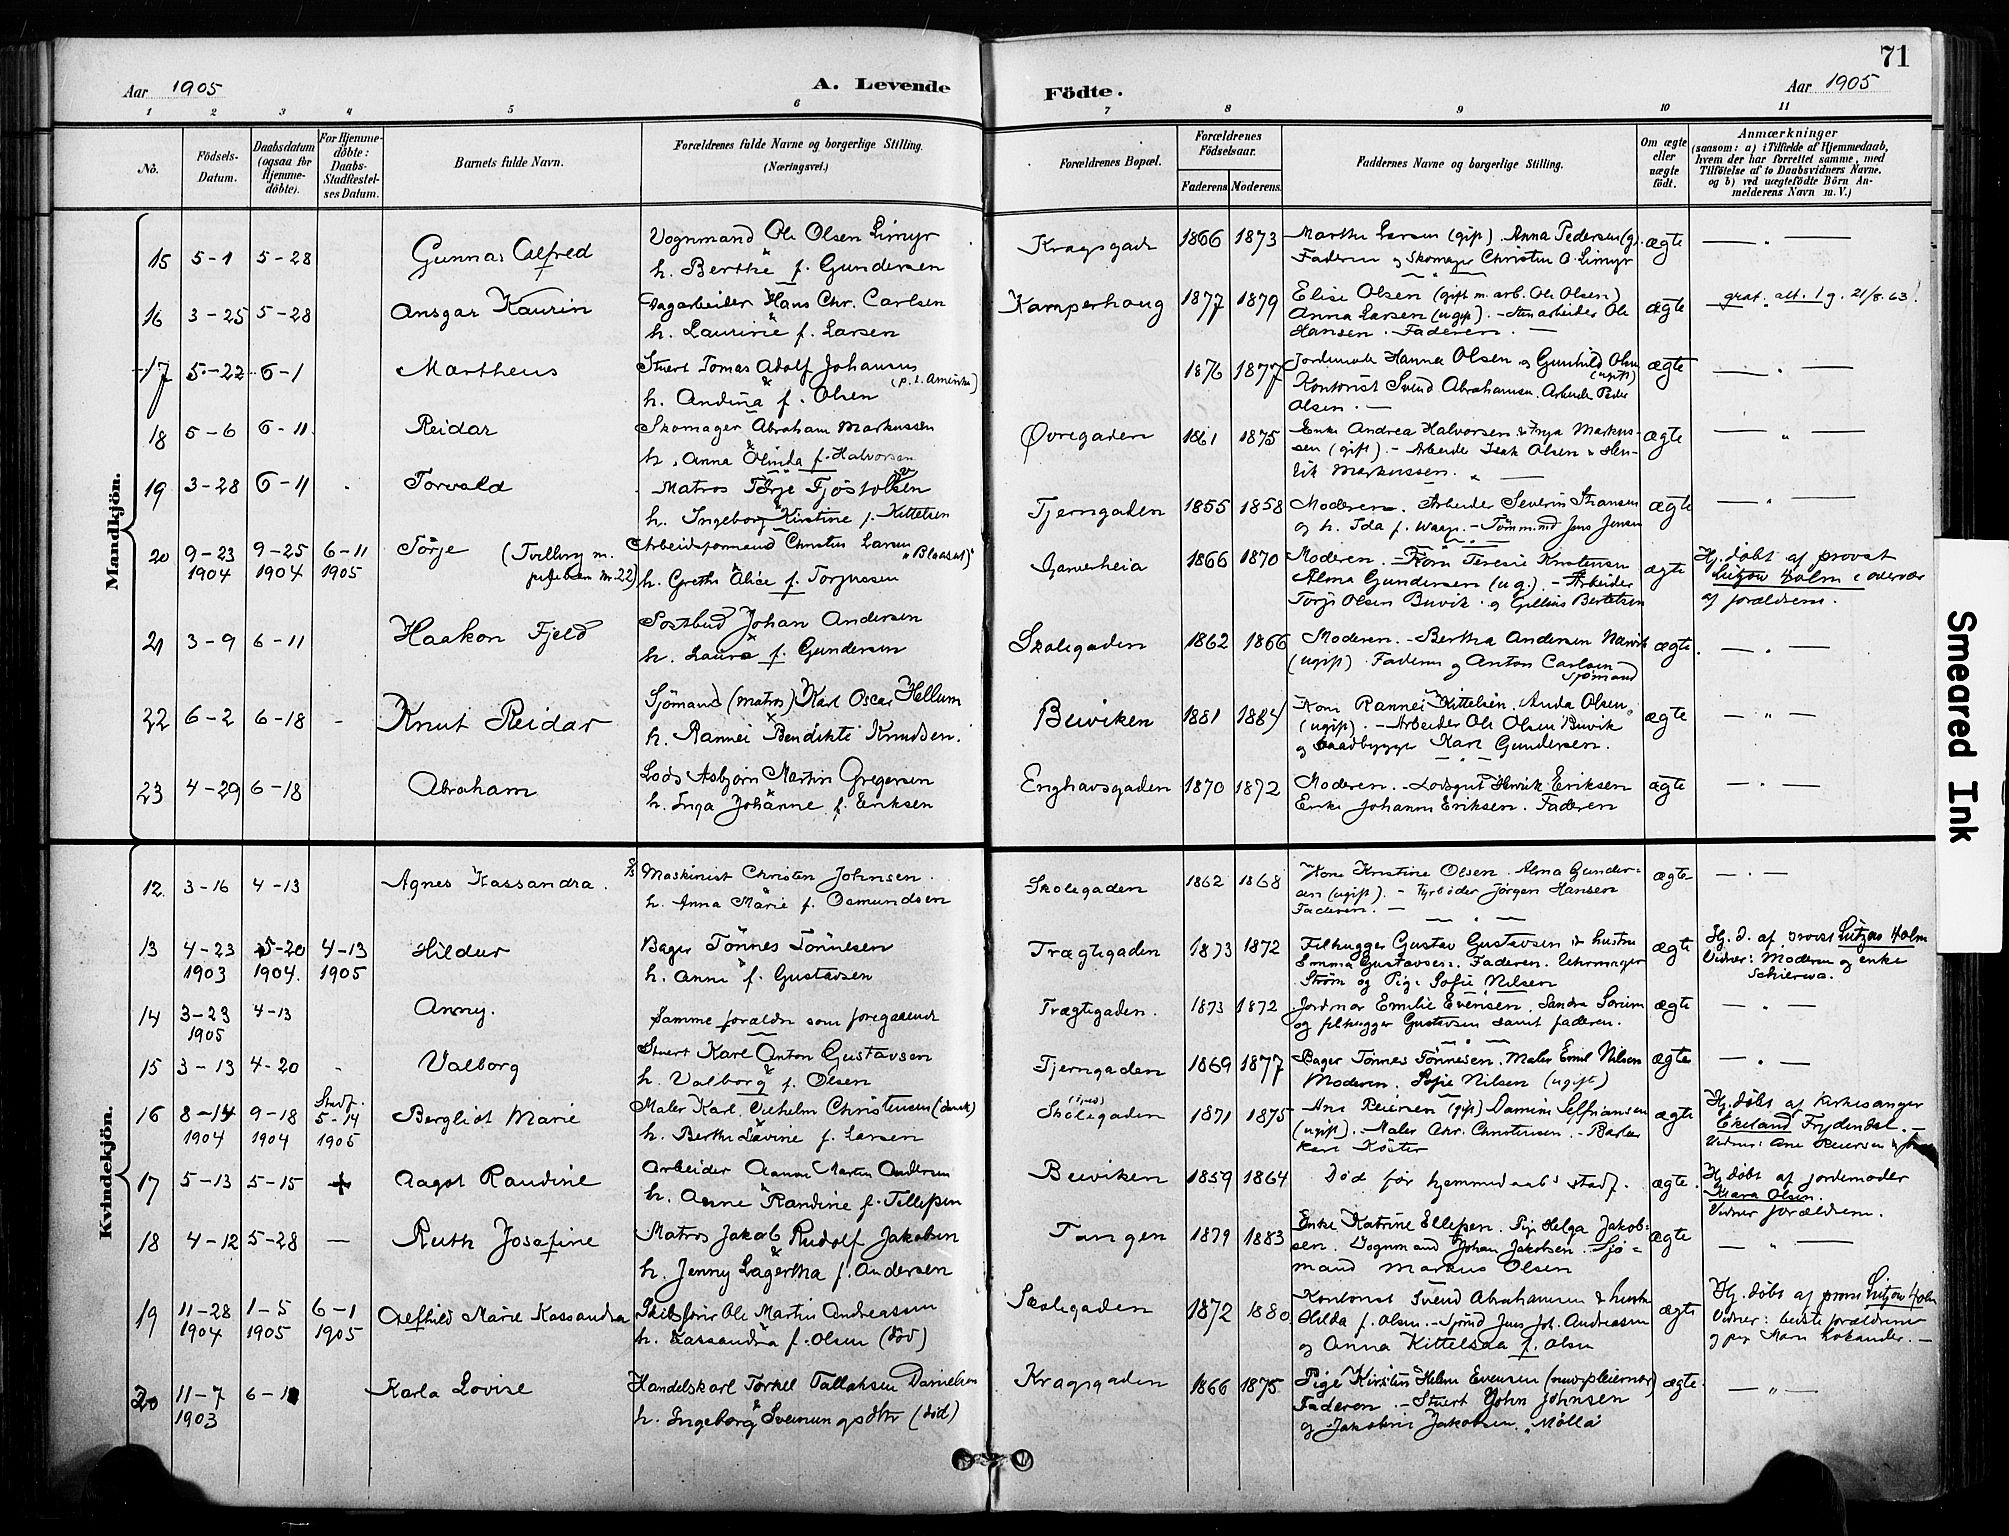 71
Aar 1905
A. Levende
Födte.
Aar 1905
1 2 3 4 5 6 7 8 9 10 11
No.
Födsels-Datum.
Daabsdatum (ogsaa for Hjemme-döbte).
For Hjemme-döbte: Daabs-Stadfæstel-ses Datum.
Barnets fulde Navn.
Forældrenes fulde Navne og borgerlige Stilling.
(Næringsvei.)
Forældrenes Bopæl.
Forældrenes Födselsaar.
Faderens. Moderens.
Faddernes Navne og borgerlige Stilling.
Om ægte eller uægte födt.
Anmærkninger
(saasom: a) i Tilfælde af Hjemmedaab,
hvem der har forrettet samme, med
Tilföielse af to Daabsvidners Navne,
og b) ved uægtefödte Börn An-
melderens Navn m. V.)
Mandkjön.
15 5-1 5-28 Gunnar Alfred Vognmand Ole Olsen Limyr
h. Berthe f. Gundersen
Kragsgade 1866 1873 Marthe Larsen (gift). Anna Pedersen (g).
Faderen og Skomager Christen O. Limyr
ægte
16 3-25 5-28 Ansgar Kaurin Dagarbeider Hans Chr. Carlsen
h. Laurine f. Larsen
Kamperhoug 1877 1879 Elise Olsen (gift m. arb. Ole Olsen)
Anna Larsen (ugift). - Stenarbeider Ole
Hansen. Faderen. -
ægte grat. att. 21/8.63.
17 5-22 6-1 Martheus Stuert Tomas Adolf Johansen
(p. t. Amerika)
h. Andina f. Olsen
1876 1877 Jordemode Hanna Olsen og Gunhild Olsen
(ugift)
Kontorist Svend Abrahamsen. Arbeider Peder
Olsen. -
ægte
18 5-6 6-11 Reidar Skomager Abraham Markussen
h. Anna Olinda f. Halvorsen
Øvregaden 1861 1875 Enke Andrea Halvorsen & Inga Markus-
sen (gift). - Arbeider Isak Olsen & Hen-
rik Markussen.
ægte
19 3-28 6-11 Torvald Matros Terje Fjöstolsen
h. Ingeborg Kirstine f. Kittelsen
Tjerngaden 1855 1858 Moderen. Arbeider Severin
og h. Ida f. - Tömm.md Jens Jensen
ægte
20 9-23 9-25 6-11 Törje (Tvilling m.
1904 1904 1905 22)
Arbeidsformand Christen Larsen "Blaasut"
h. Grethe Alice f. Torjussen
1866 1870 Moderen. Kone Teresie Knutsen
Alma Gundersen (ug). - Arbeider
Torjs Olsen Buvik og Bertelsen
ægte Hj. döbt af provst
Lützow Holm i overvær
af forældrene.
21 3-9 6-11 Haakon Fjeld Postbud Johan Andersen
h. Laura f. Gundersen
Skolegaden 1862 1866 Moderen. - Bertha Andersen
(ugift). Faderen og Anton Carlsen
Sjömand
ægte
22 6-2 6-18 - Knut Reidar Sjömand (matros) Karl Oscar Hellum
h. Rannei Bendikte Knudsen.
Buviken 1881 1884 Kone Rannei Kittelsen, Anda Olsen,
(ugift). - Arbeider Ole Olsen Buvik
og baadbygger Karl Gundersen.
ægte
23 4-29 6-18 Abraham Lods Asbjørn Martin Gregersen
h. Inga Johanne f. Eriksen
Enghavsgaden 1870 1872 Moderen. - Lodsgut Henrik Eriksen
Enke Johanne Eriksen. Faderen
ægte
Kvindekjön.
12 3-16 4-13 Agnes Kassandra. Maskinist Christen Johnsen.
h. Anna Marie f. Osmundsen
Skolegaden 1862 1868 Kone Kristine Olsen. Alma Gunder-
sen (ugift). - Fyrböder Jörgen Hansen
Faderen. -
ægte
13 4-23 5-20 4-13 Hildur Bager Tönnes Tönnesen
1903 1904. 1905 h. Anne f. Gustavsen
Trægtegaden 1873 1872 Filhugger Gustav Gustavsen & hustru
Emma Gustavsen. Faderen. Uhrmager
Ström og Pige Sofie Nilsen
ægte Hj. d. af provst Lützow Holm
Vidner: Moderen og enke
14 3-23 4-13 Anny. Samme forældre som foregaaende
1905
Trægtegaden. 1873 1872 Jordmor Emilie Evensen, Sandra
og filhugger Gustavsen samt faderen.
ægte
15 3-13 4-20 - Valborg Stuert Karl Anton Gustavsen
h. Valborg f. Olsen
Tjerngaden 1869 1877 Bager Tönnes Tönnesen. Maler Emil Nilsen
Moderen. Sofie Nilsen (ugift)
ægte
16 8-14 9-18 Stadf. 5-14 Bergliot Marie Maler Karl Vilhelm Christensen (dansk)
1904 1904 1905 h. Berthe Lavine f. Larsen
Skolegaden 1871 1875 Ane Reiersen (gift) Damine
(ugift). Maler Chr. Christensen. - Barber
Karl Köster
ægte Hj. döbt af kirkesanger
Ekeland Frydendal. -
Vidner: Ane Reiersen &
17 5-13 5-15 + Aagot Raudine Arbeider Aanon Martin Andersen
h. Anne Randine f. Tellefsen
Buviken 1859 1864 Död för hjemmedaabs stadf.
ægte. Hj. döbt af jordemoder
Klara Olsen.
Vidner forældrene.
18 4-12 5-28 - Ruth Josefine Matros Jakob Rudolf Jakobsen
h. Jenny Lagertha f. Andersen
Tangen 1879 1883 Enke Katrine Ellefsen. Pige Helga Jakob-
sen. Vognmand Johan Jakobsen. Sjö-
mand Markus Olsen
ægte
19 11-28 1-5 6-1 Alfhild Marie Kassandra Skibsförer Ole Martin Andreassen
1904 1905 1905 h. Kassandra f. Olsen (död)
Skolegaden 1872 1880 Kontorist Svend Abrahamsen & hustru
Hilda f. Olsen. - Sjömd Jens Joh. Andreassen
og Anna Kittelsaa f. Olsen
ægte Hj. döbt af provst Lützow Holm
Vidner: bedsteforældrene
og pige
20 11-7 6-1 Karla Lovise Handelskarl Torkel Tallaksen Danielsen
1903 h. Ingeborg Sveinungsdtr (död)
Kragsgaden 1866 1875 Pige Kirsten Helene Evensen
Faderen. - Stuert John Johnsen
og Jakobine Jakobsen. "Mölla"
ægte
Smeared Ink